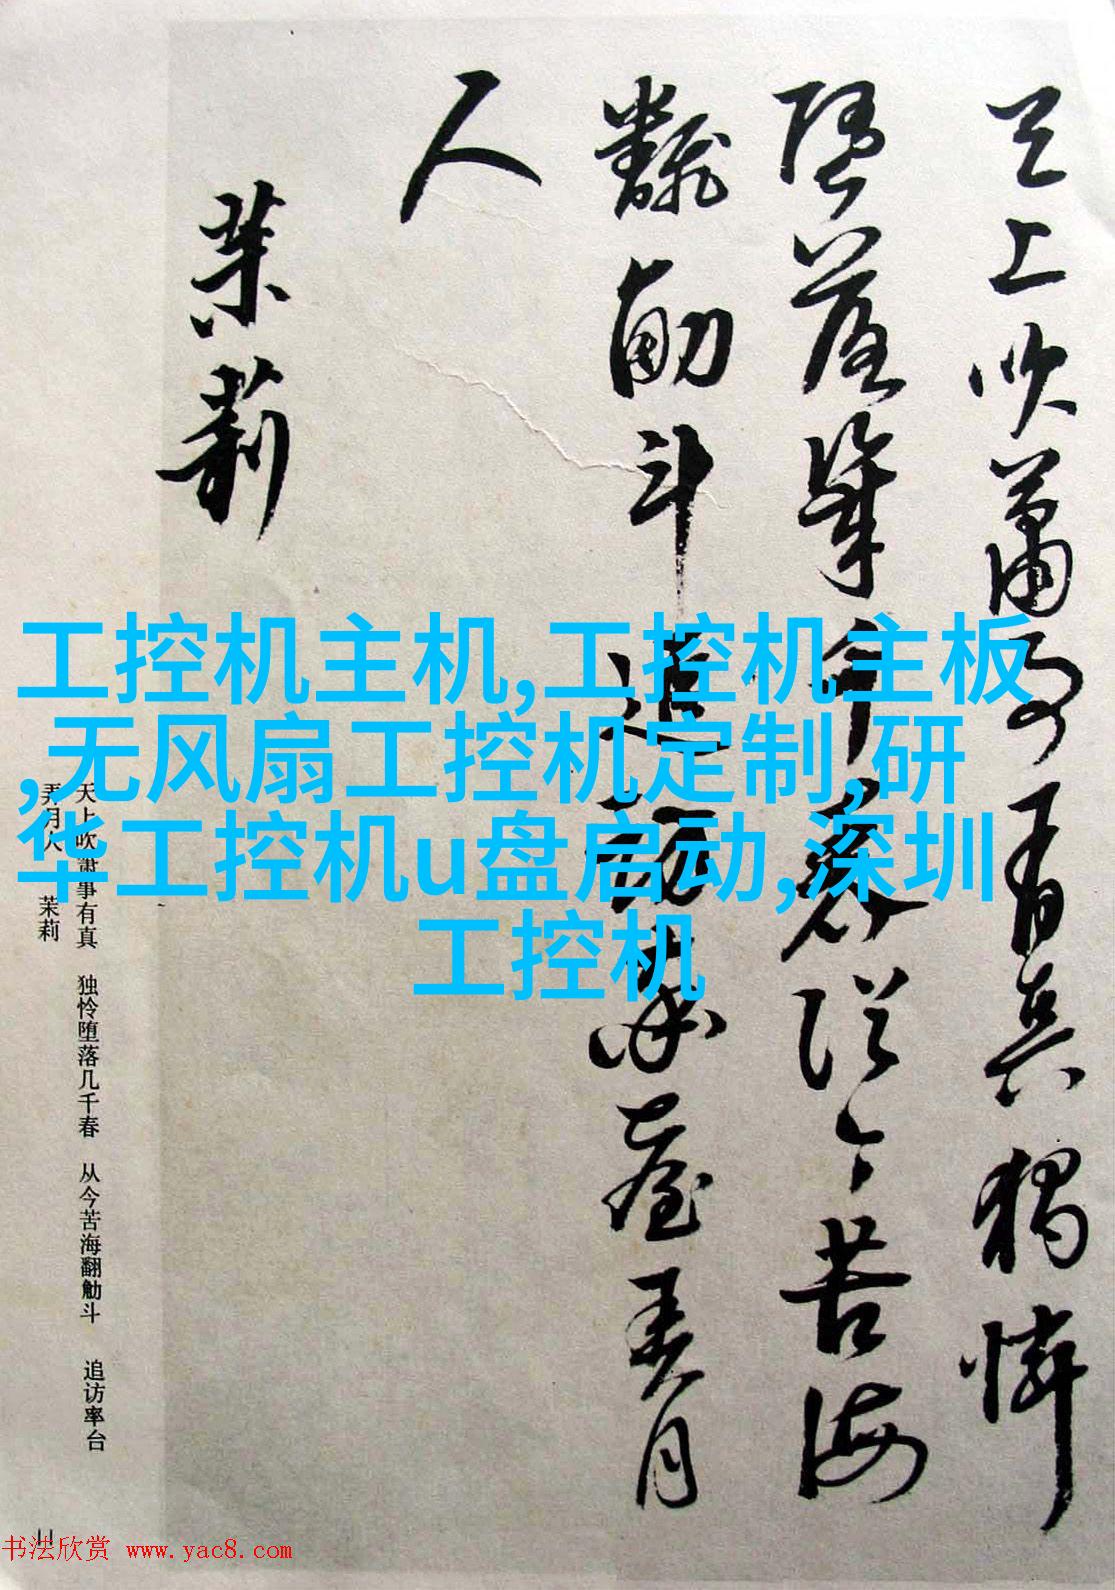 天上吹萧事有真獨憐
堕落幾千春從今苦海
翻觔斗追訪率臺弄月
人
茉莉
工控机主机,工控机主板
,无风扇工控机定制,研
华工控机u盘启动,深圳
工控机
天上吹萧事有真 独怜堕落几千春 从今苦海翻觔斗 追访率台
弄月人 茉莉
11
书法欣赏 www.yac8.com